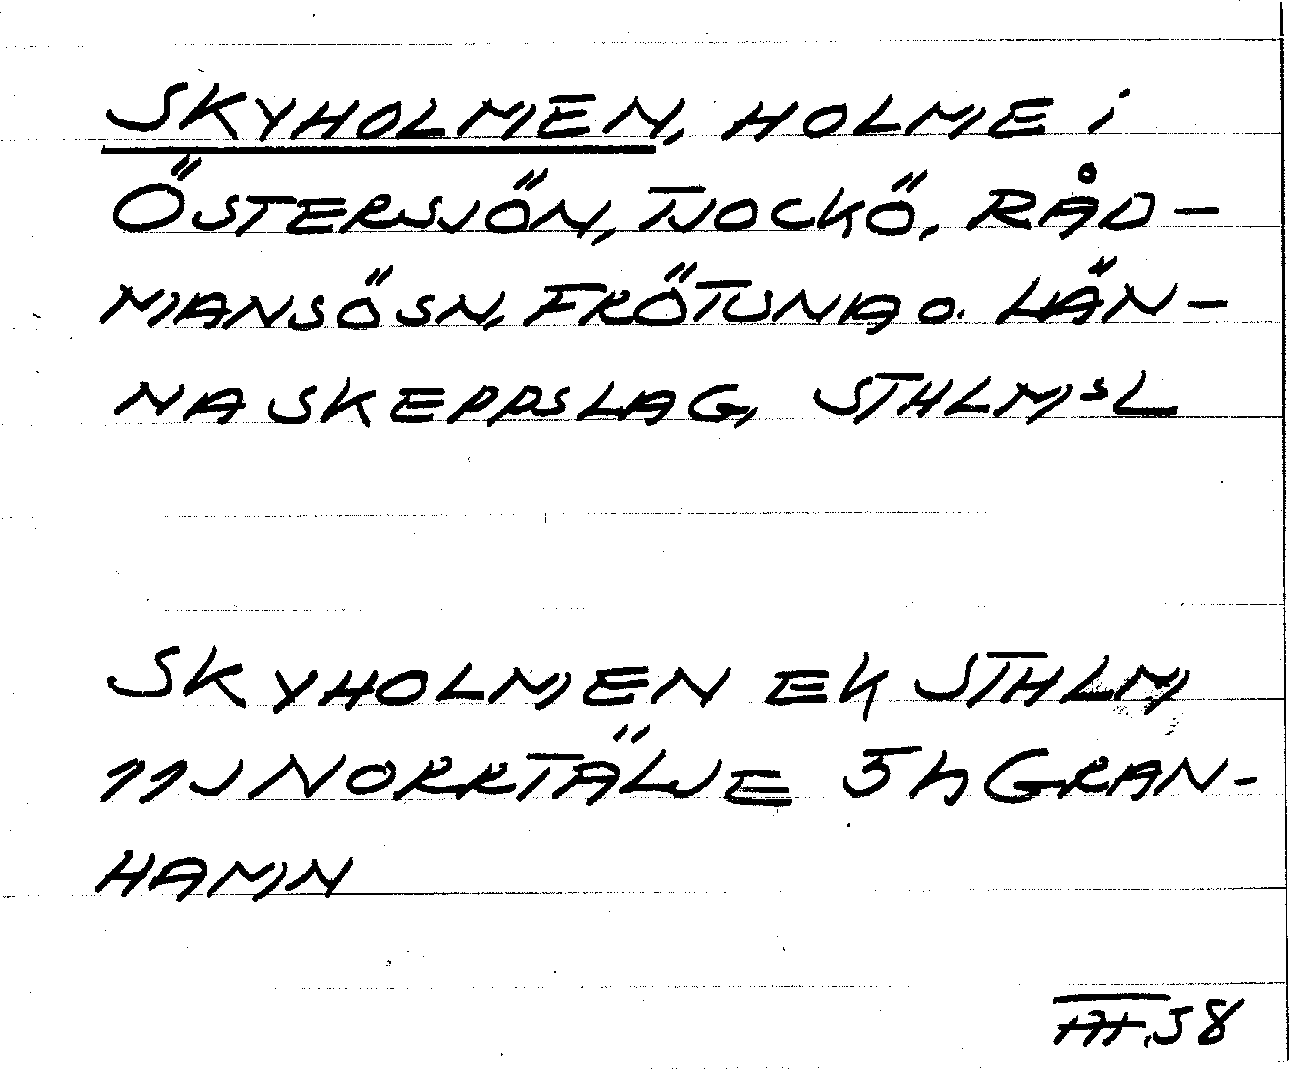 SKYHOLMEN, HOLME i
ÖSTERSJÖN, TJOCKÖ, RÅD-
MANSÖ SN, FRÖTUNA O. LÄN-
NA SKEPPSLAG, STHLMSL
SKYHOLMEN EK STHLM
11J NORRTÄLJE 5h GRAN-
HAMN